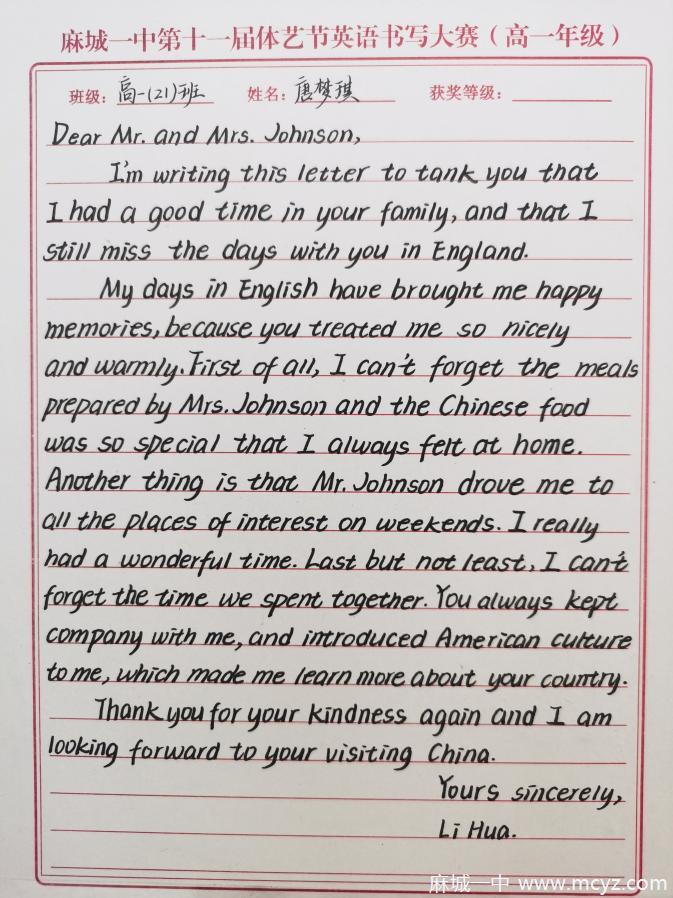 麻城一中第十一届体艺节英语书写大赛（高一年级）
班级：高一(21)班 姓名：唐梦琪 获奖等级：
Dear Mr. and Mrs. Johnson,
I'm writing this letter to tank you that
I had a good time in your family, and that I
still miss the days with you in England.
My days in English have brought me happy
memories, because you treated me so nicely
and warmly. First of all, I can't forget the meals
prepared by Mrs. Johnson and the Chinese food
was so special that I always felt at home.
Another thing is that Mr. Johnson drove me to
all the places of interest on weekends. I really
had a wonderful time. Last but not least, I can't
forget the time we spent together. You always kept
company with me, and introduced American culture
to me, which made me learn more about your country.
Thank you for your kindness again and I am
looking forward to your visiting China.
Yours sincerely,
Li Hua.
麻城一中 www.mcyz.com